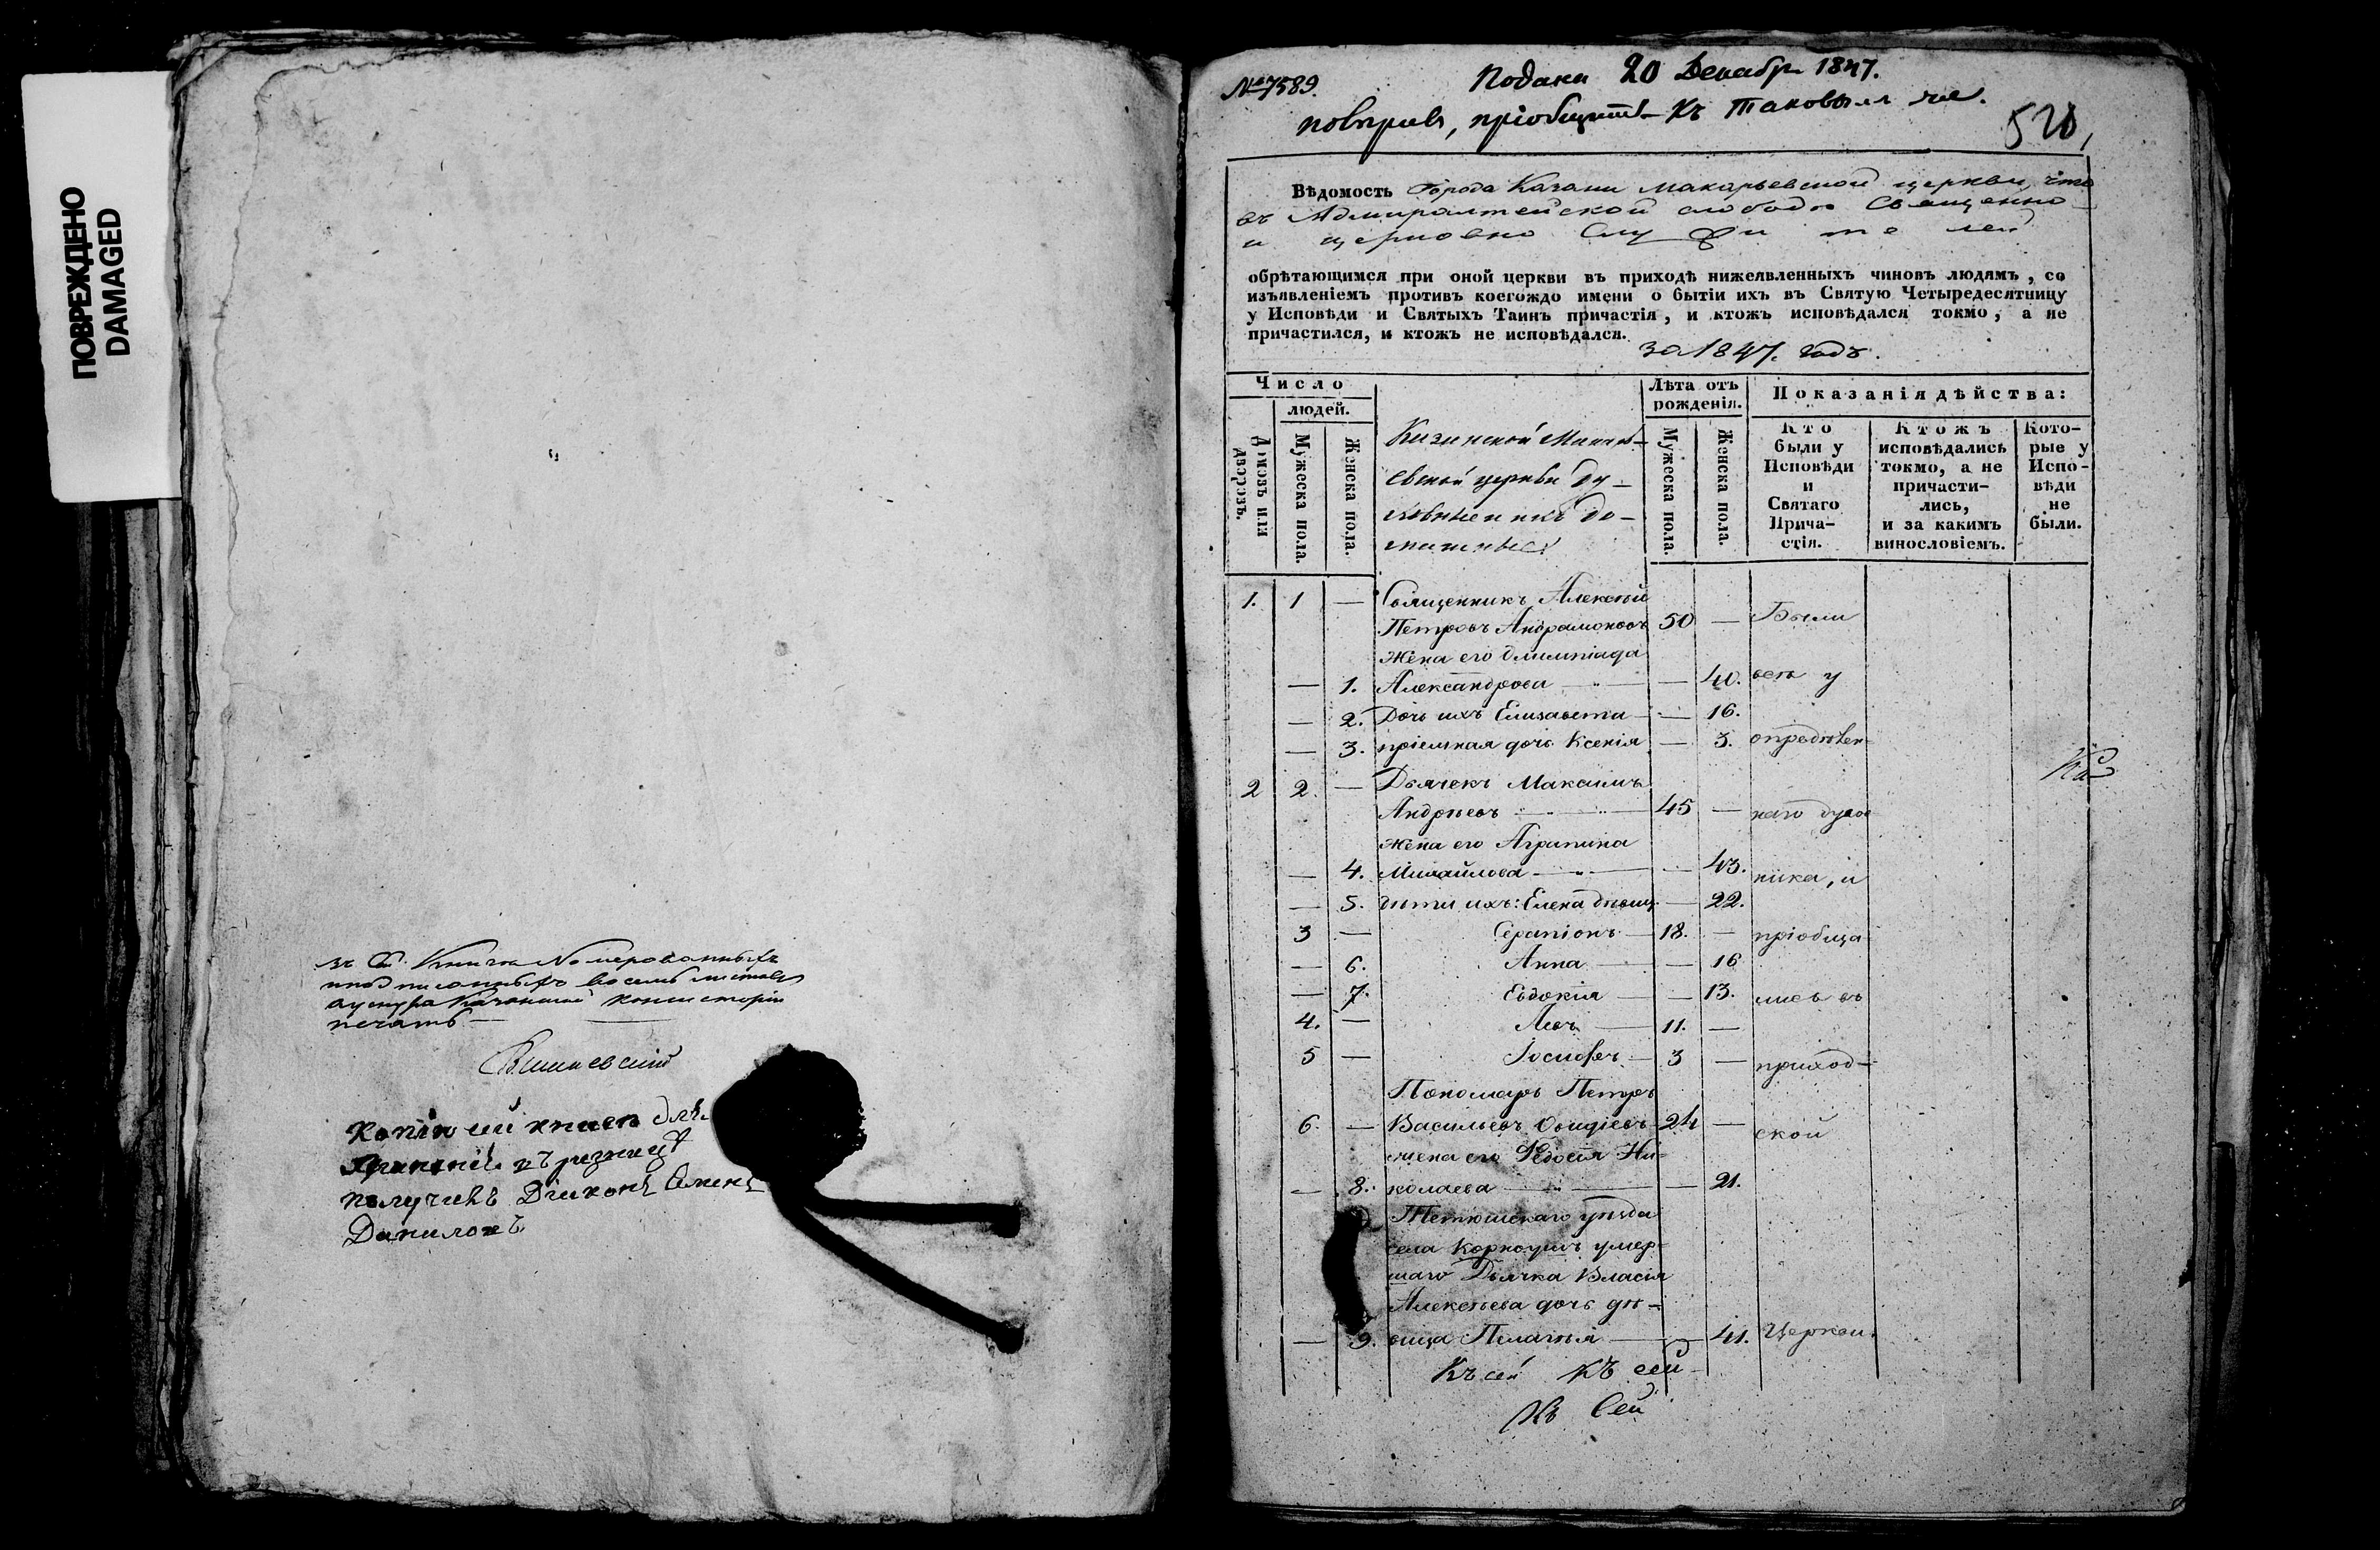 ПОВРЕЖДЕНО
DAMAGED
въ сей книге номерованныхъ
восемь листовъ
консисторіи
печать
Вишневский
Копію сей книги для
хранения въ ризнице
получилъ Діаконъ
Даниловъ
№ 7589.
Подана 20 Декабр 1847.
поверивъ, пріобщить къ таковымъ же.
520
Вѣдомость Города Казани Макарьевской церкви, что
въ Адмиралтейской слободе Священно
и церковно служителей
обрѣтающимся при оной церкви въ приходѣ нижеявленныхъ чиновъ людямъ, со
изъявленіемъ противъ коегождо имени о бытіи ихъ въ Святую Четыредесятницу
у Исповѣди и Святыхъ Таинъ причастія, и ктожъ исповѣдался токмо, а не
причастился, и ктожъ не исповѣдался.
за 1847. годъ.
Число
людей.
Домовъ или дворовъ.
Мужеска пола.
Женска пола.
Казанской Макарь-
евской церкви ду-
ховные и ихъ до-
машные
Лѣта отъ
рожденія.
Мужеска пола.
Женска пола.
Показанія дѣйства:
Кто
были у
Исповѣди
и
Святаго
Прича-
стія.
Ктожъ
исповѣдались
токмо, а не
причасти-
лись,
и за какимъ
винословіемъ.
Кото-
рые у
Испо-
вѣди
не
были.
1. 1 — Священникъ Алексѣй
Петровъ Андрамоновъ 50 — Были
Жена его Олимпіада
— 1. Александрова — — 40. всѣ у
— 2. Дочь ихъ Елизавета — — 16.
— 3. пріемная дочь Ксенія — 3. опредѣлен-
2 2. — Дьячекъ Максимъ
Андрѣевъ — 45 — наго духов
Жена его Агрипина
— 4. Михайлова — — 43. ника, и
— 5. дѣти ихъ: Елена дѣвиц. — 22.
3 — Серапіонъ — 18. — пріобща
— 6. Анна — — 16
— 7. Евдокія — — 13. лись въ
4. — Левъ — 11. —
5 — Іосифъ — 3 — приход-
Пономарь Петръ
6. — Васильевъ 24 — ской
жена его Ѳедосія Ни-
— 8. колаева — — 21.
Тетюшскаго уѣзда
села умер-
шаго Дьячка Власія
Алексѣева дочь дѣ-
— 9. вица Пелагія — — 41. Церкви.
Къ сей къ сей
Къ Сей
Ка